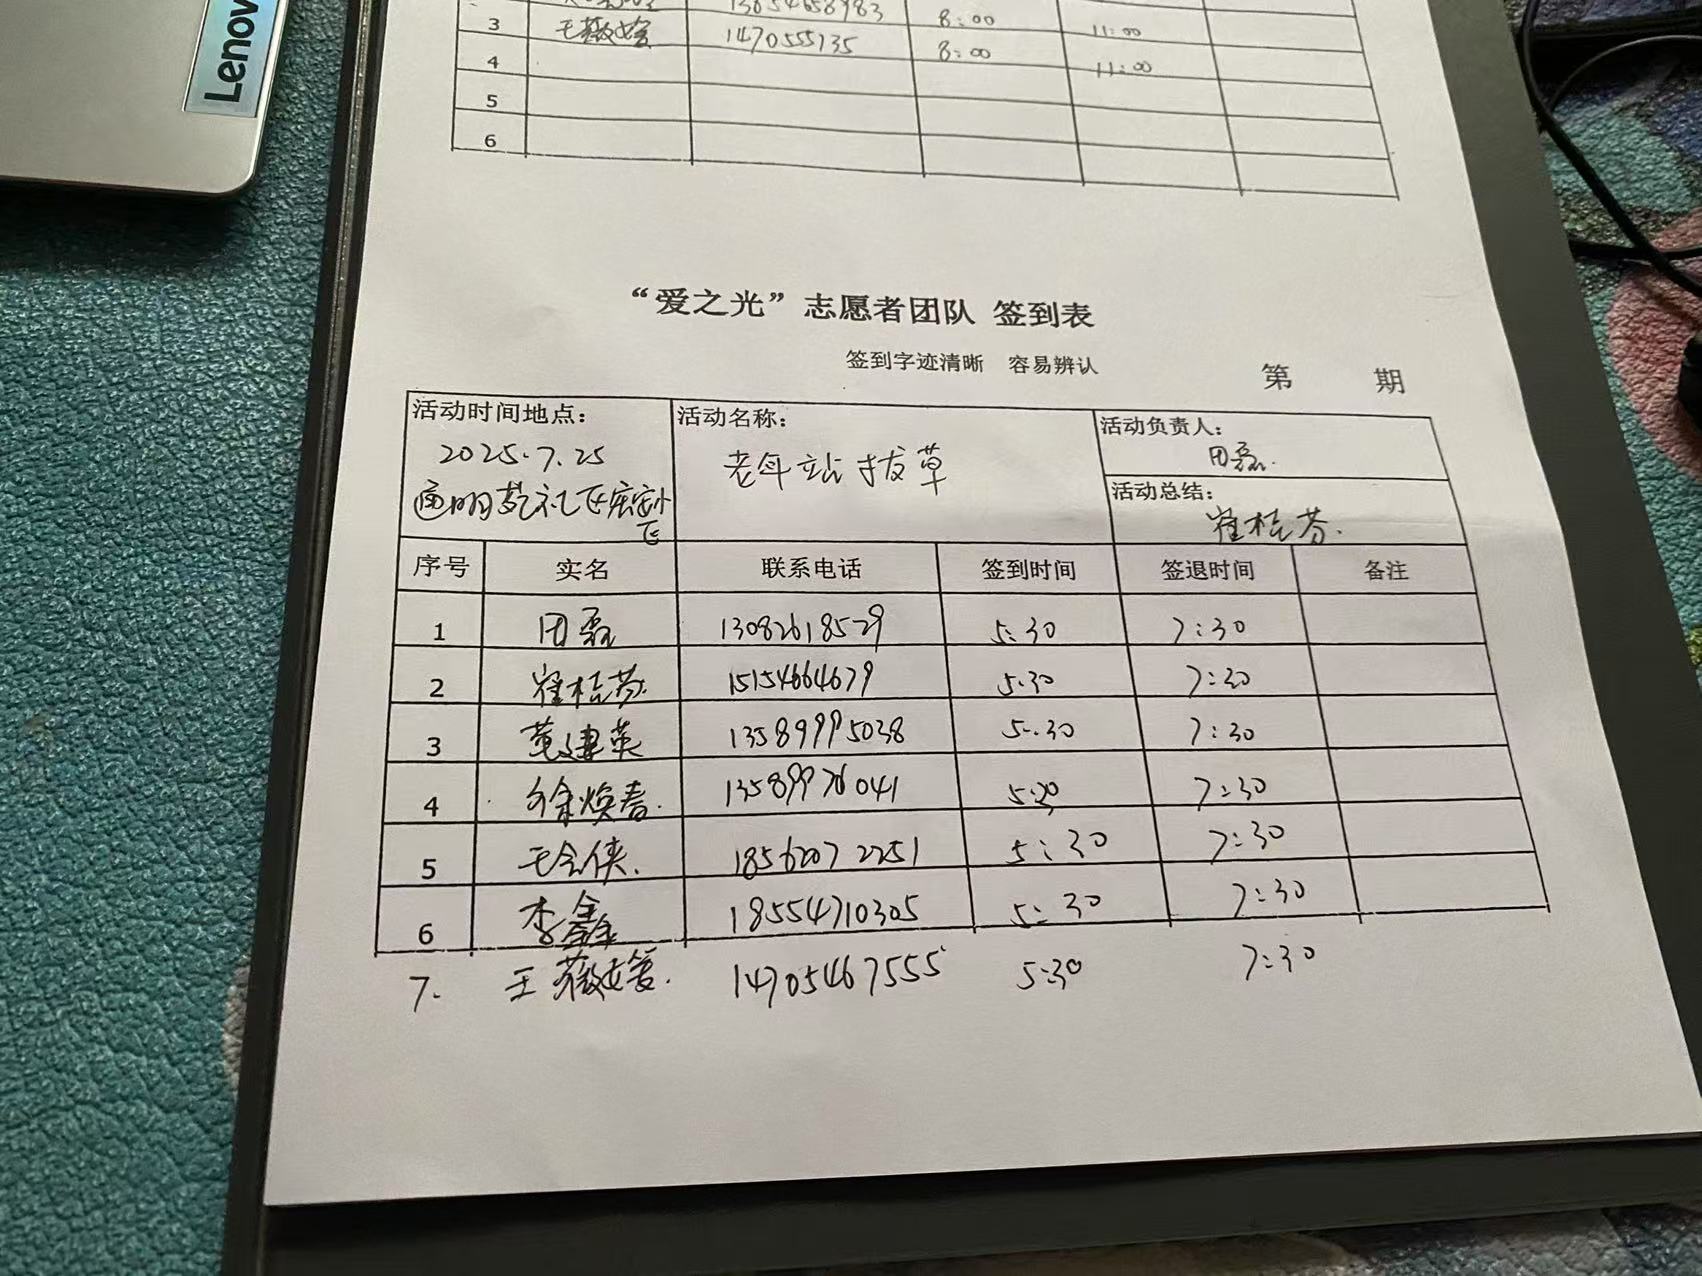 Lenov
13054658983 8:00
3 王薇嫆 1470555135 8:00 11:00
4 11:00
5
6
“爱之光”志愿者团队 签到表
签到字迹清晰 容易辨认
第 期
活动时间地点: 活动名称: 活动负责人:
2025.7.25 老年站拔草 田磊.
活动总结:
崔桂芬.
序号 实名 联系电话 签到时间 签退时间 备注
1 田磊 13082618529 5:30 7:30
2 崔桂芬. 15154664679 5:30 7:30
3 黄建英 13589995038 5:30 7:30
4 徐焕春. 13589976041 5:30 7:30
5 王会侠. 18562072251 5:30 7:30
6 李鑫 18554710305 5:30 7:30
7. 王薇嫆. 14705467555 5:30 7:30